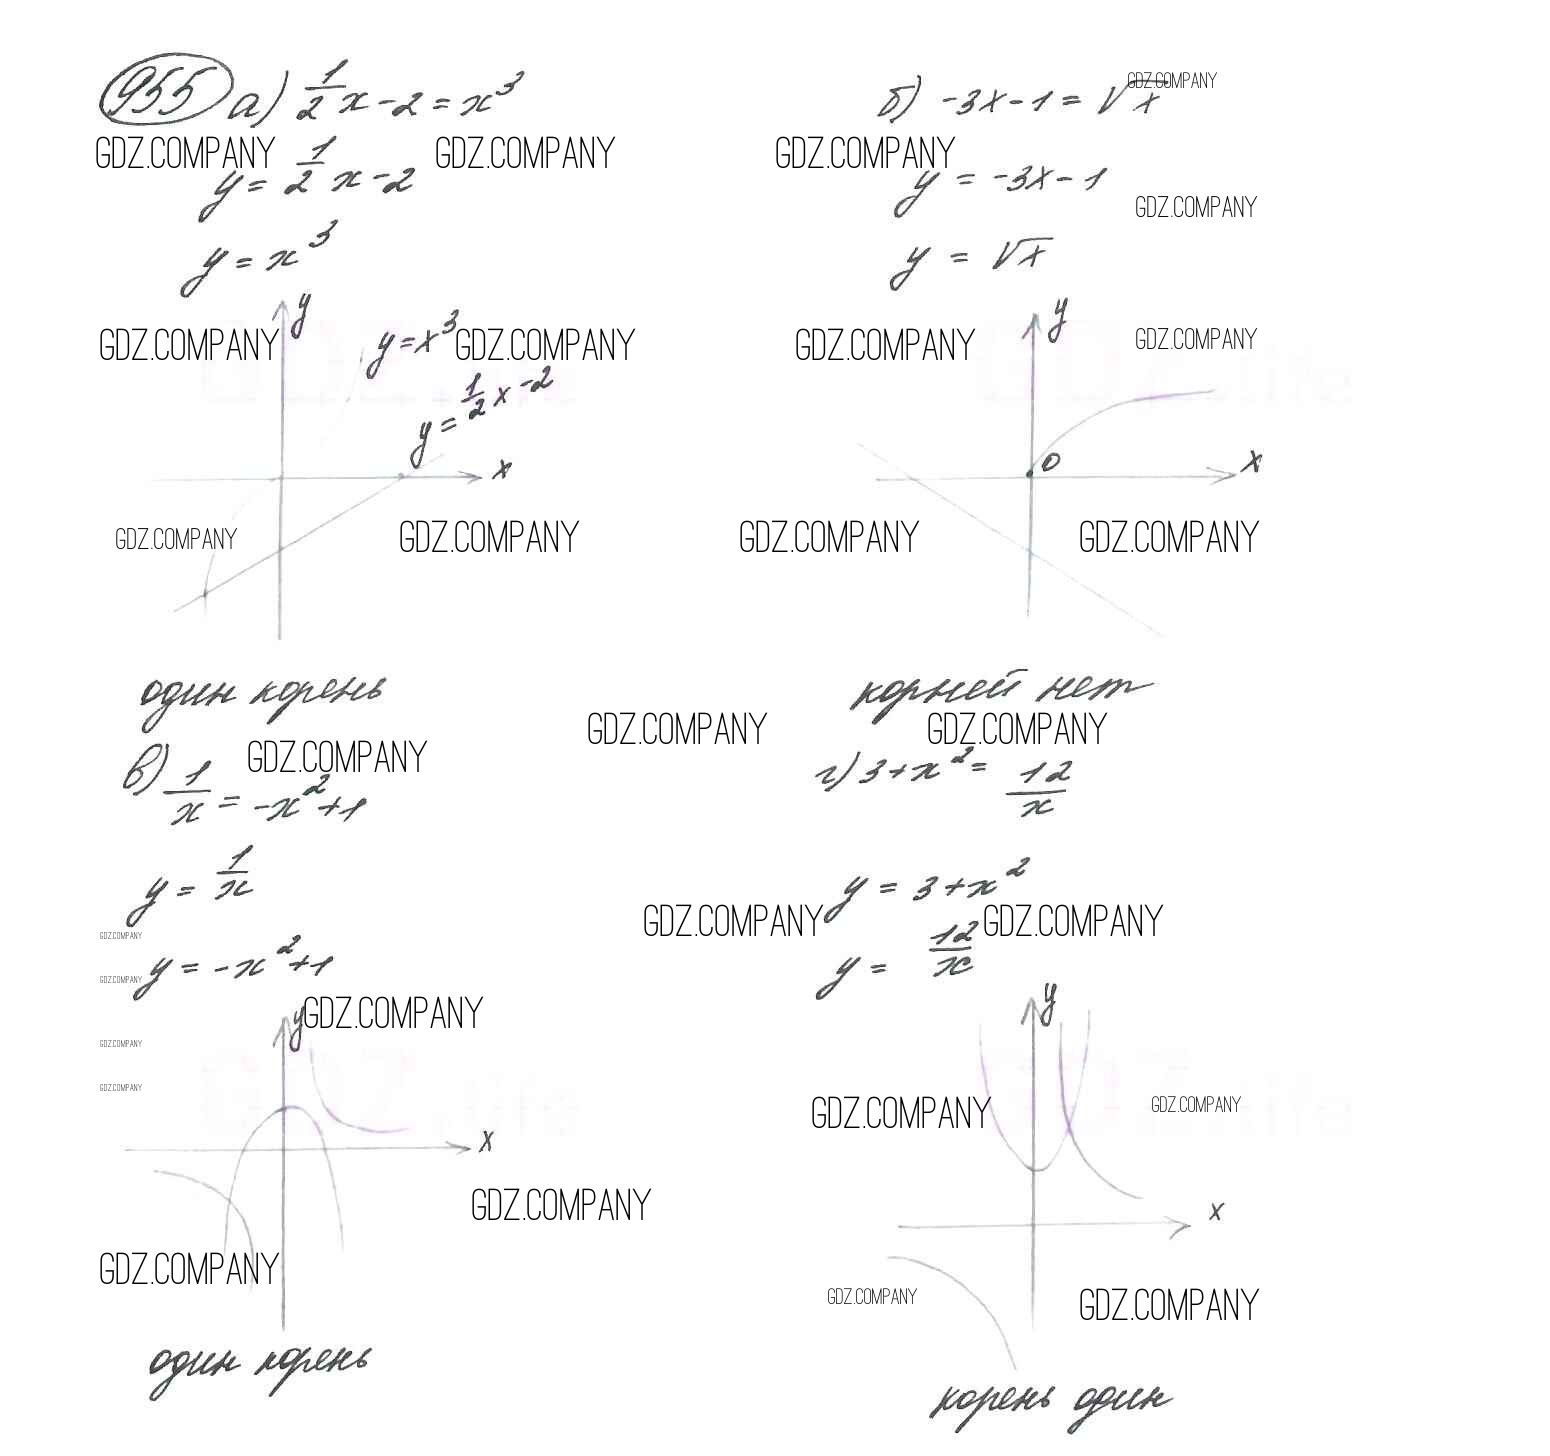 955 а) 1/2 x - 2 = x³
GDZ.COMPANY GDZ.COMPANY
y = 1/2 x - 2
y = x³
y
GDZ.COMPANY y = x³ GDZ.COMPANY
y = 1/2 x - 2
x
GDZ.COMPANY GDZ.COMPANY
один корень
б) -3x - 1 = √x
GDZ.COMPANY
GDZ.COMPANY
y = -3x - 1
GDZ.COMPANY
y = √x
y
GDZ.COMPANY GDZ.COMPANY
0 x
GDZ.COMPANY GDZ.COMPANY
корней нет
GDZ.COMPANY GDZ.COMPANY
в) 1/x = -x² + 1
GDZ.COMPANY
y = 1/x
GDZ.COMPANY
y = -x² + 1
GDZ.COMPANY
y GDZ.COMPANY
GDZ.COMPANY
GDZ.COMPANY
x
GDZ.COMPANY
GDZ.COMPANY
один корень
г) 3 + x² = 12/x
y = 3 + x²
GDZ.COMPANY GDZ.COMPANY
y = 12/x
y
GDZ.COMPANY GDZ.COMPANY
x
GDZ.COMPANY GDZ.COMPANY
корень один